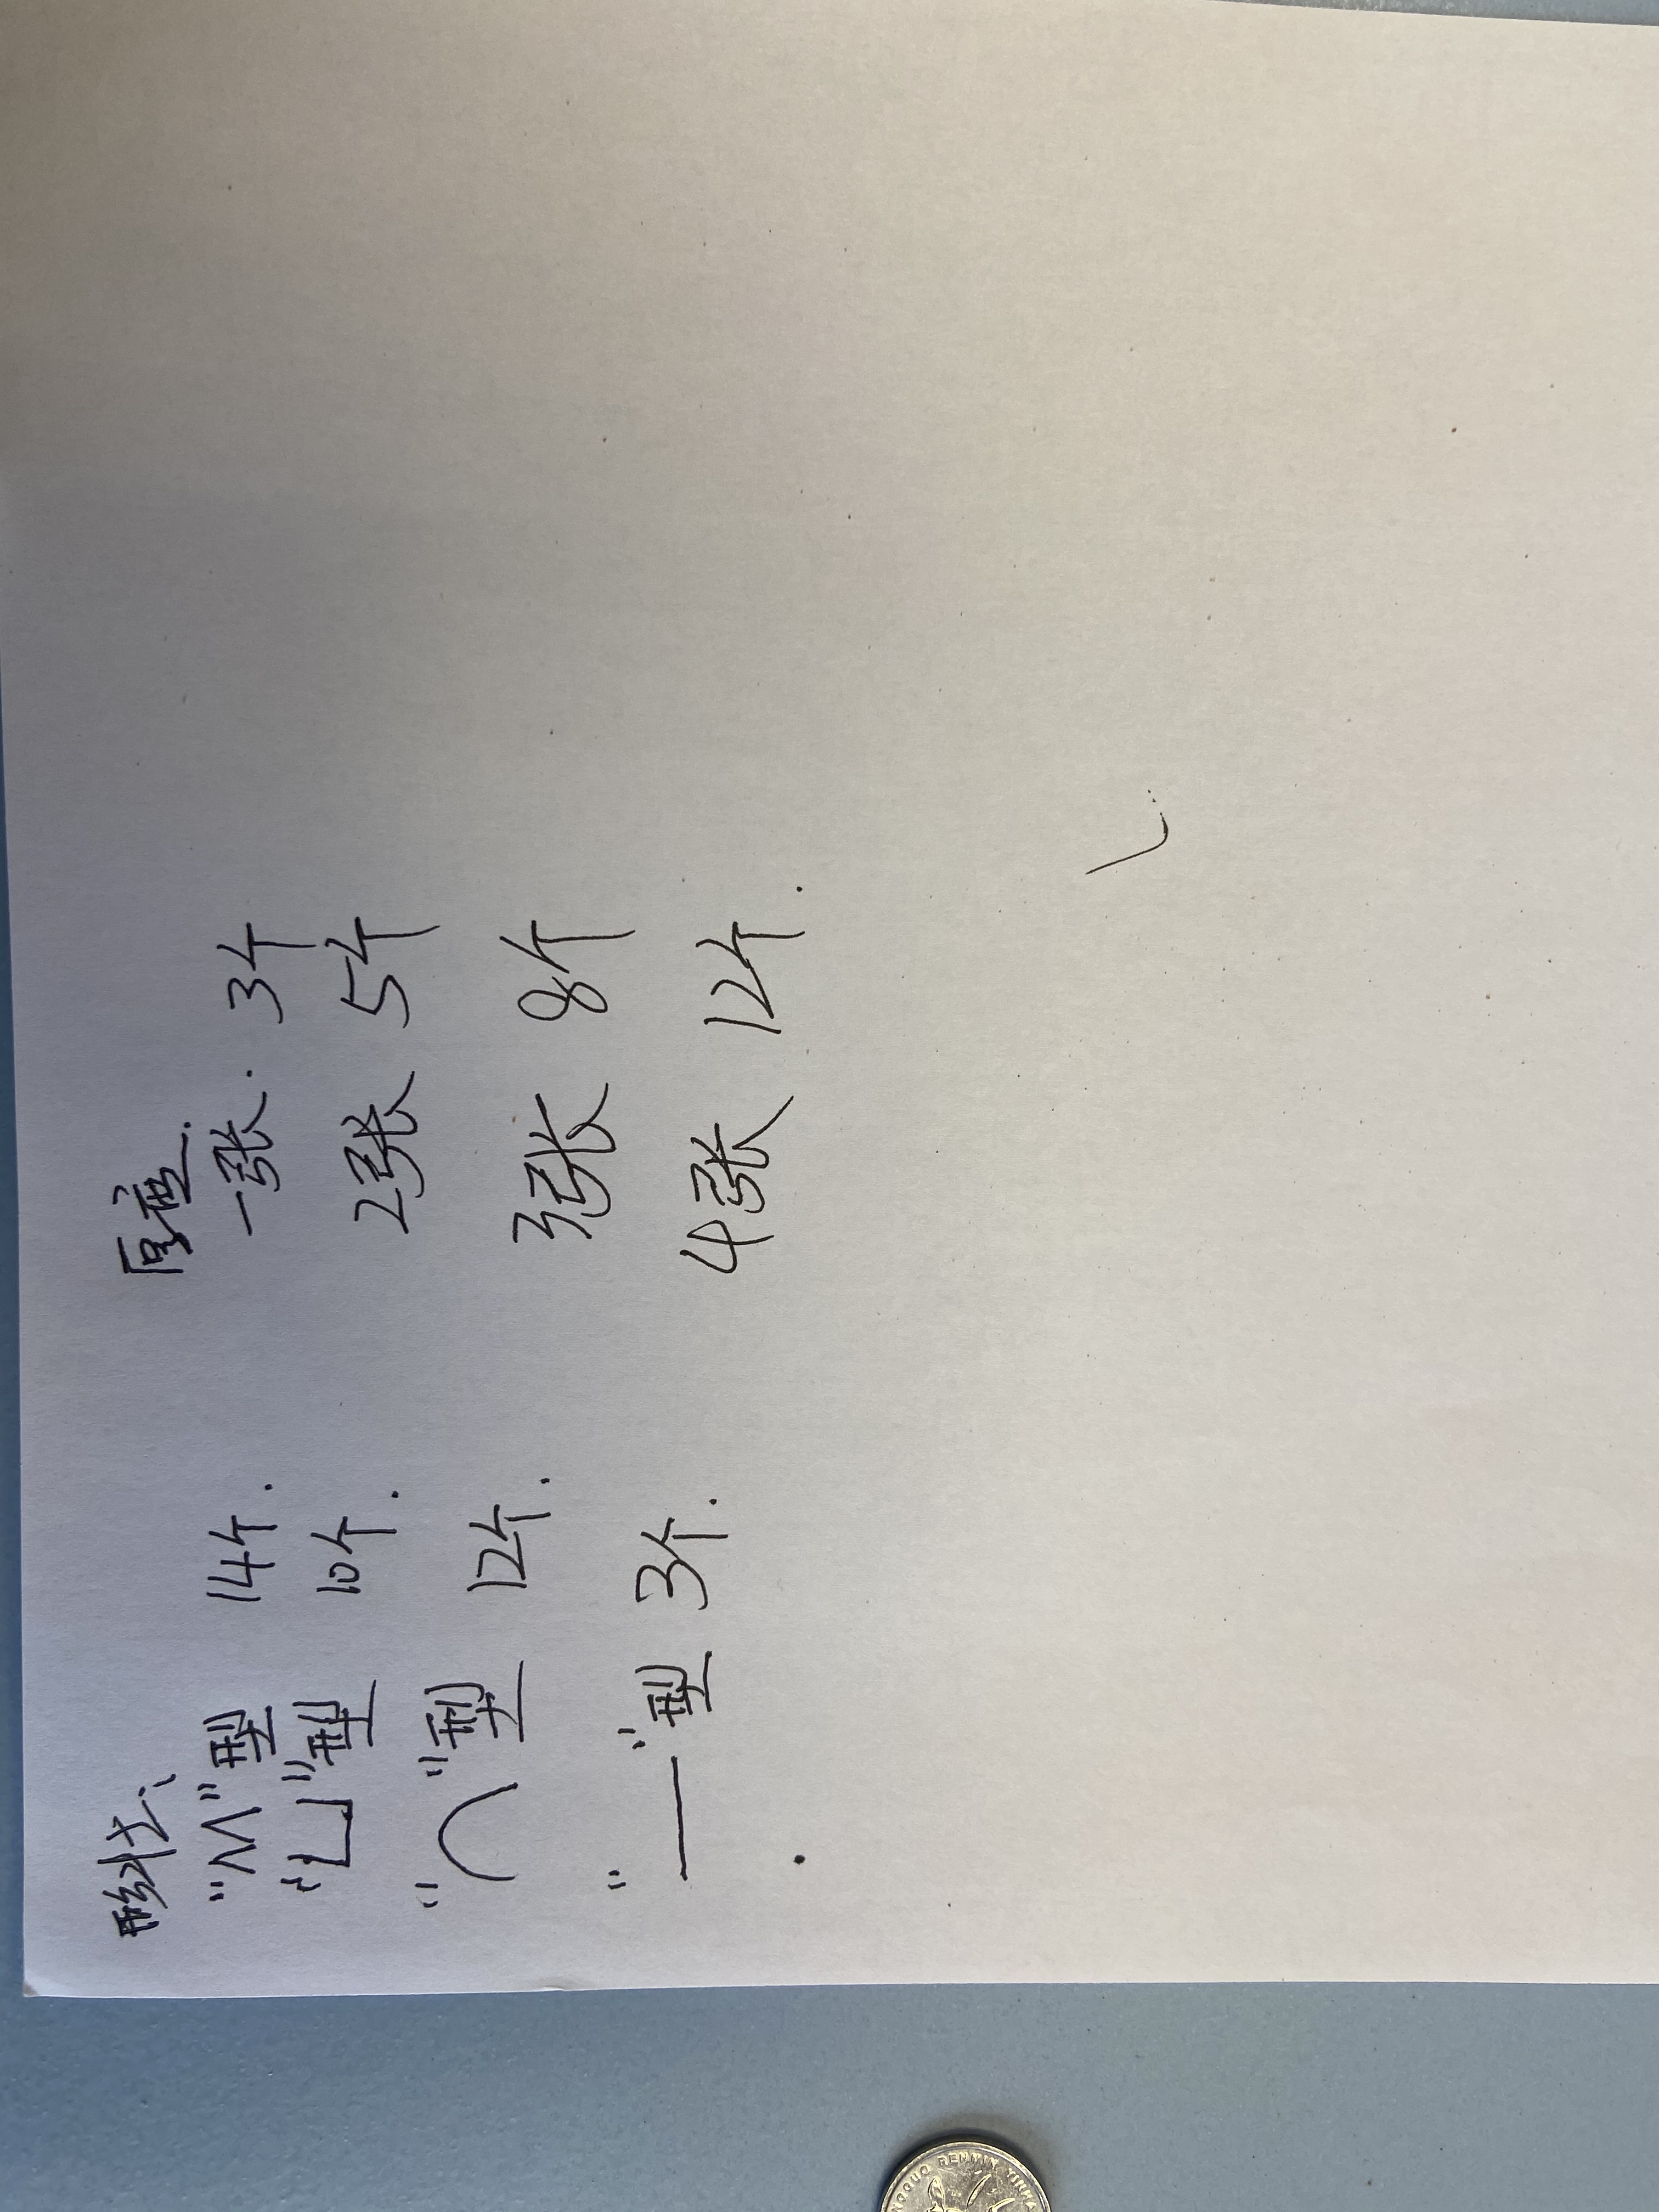 形状:
“M”型 14个.
“凵”型 10个.
“⌒”型 12个.
“—”型 3个.
厚度.
一张. 3个
2张 5个
3张 8个
4张 12个.
RENMIN